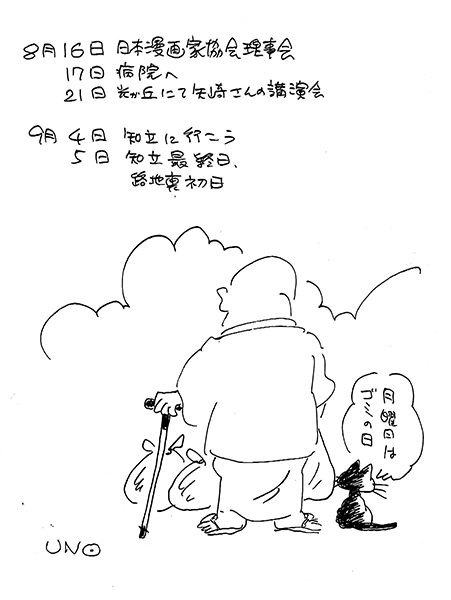 8月16日 日本漫画家協会理事会
17日 病院へ
21日 光が丘にて矢崎さんの講演会
9月 4日 知立に行こう
5日 知立最終日、
路地裏初日
月曜日は
ゴミの日
UNO